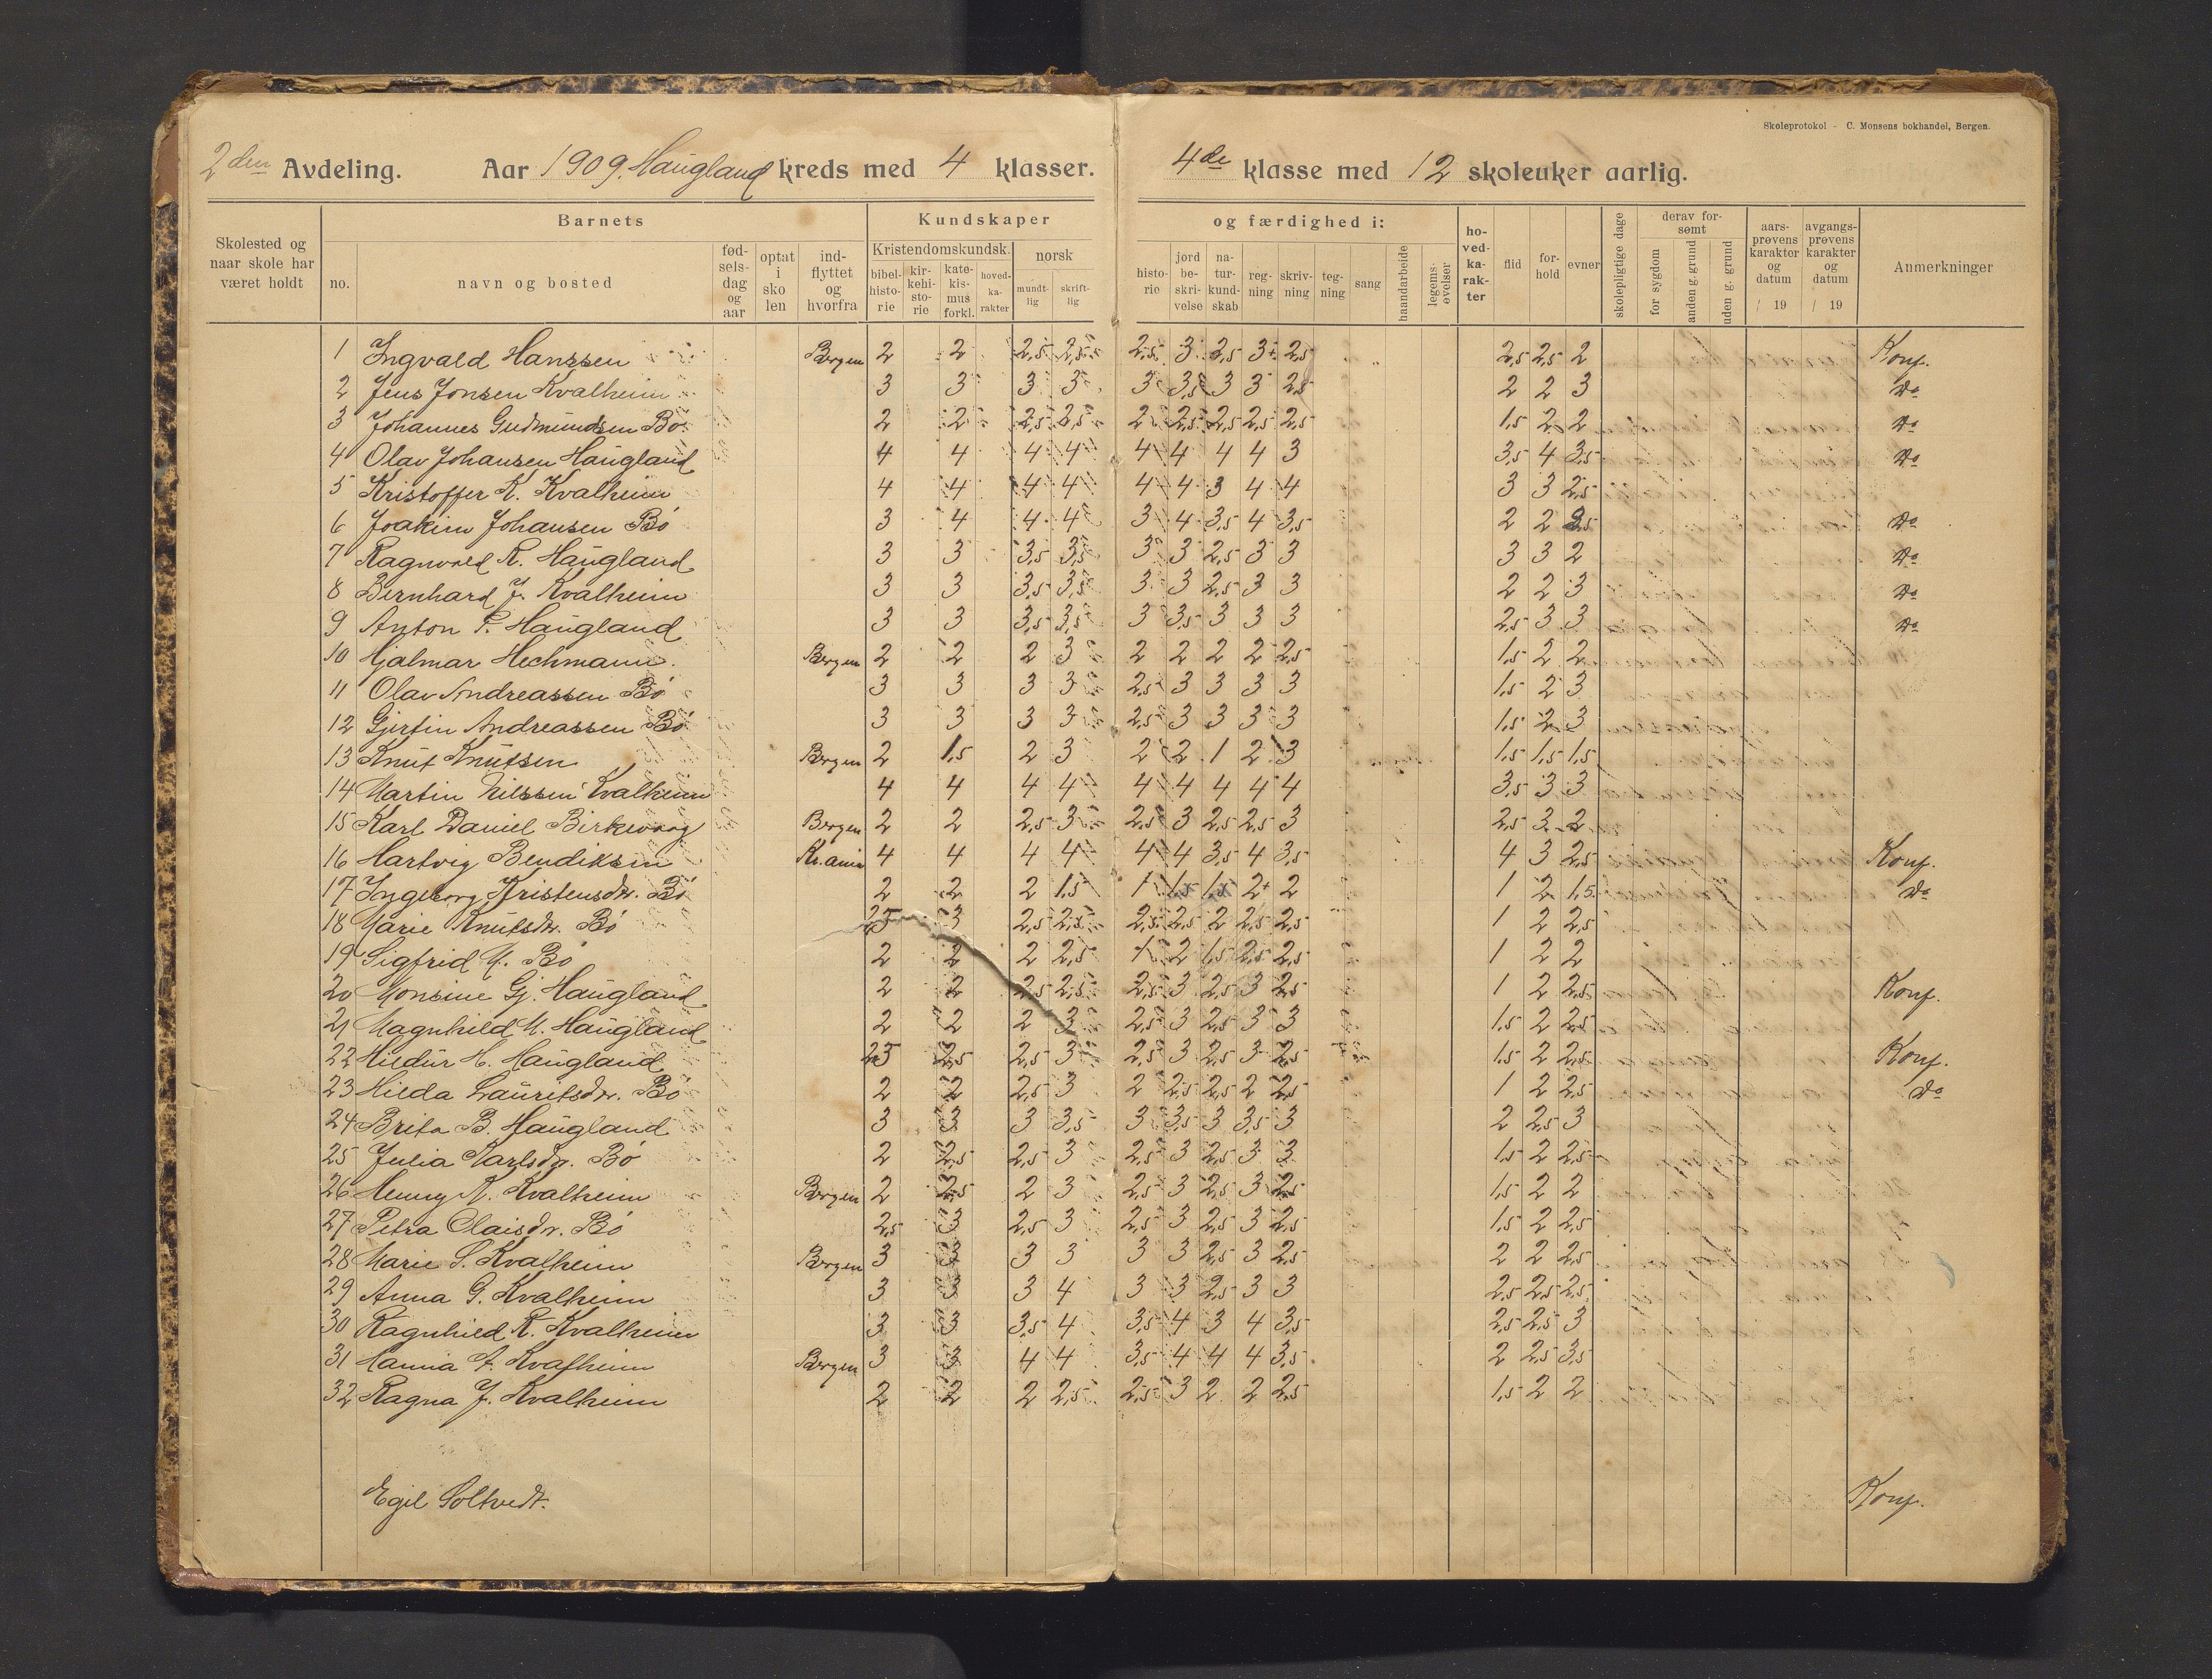 Skoleprotokol - C. Monsens bokhandel, Bergen.
2den Avdeling. Aar 1909. Haugland kreds med 4 klasser. 4de klasse med 12 skoleuker aarlig.
Skolested og naar skole har været holdt
Barnets
no. navn og bosted fødselsdag og aar optat i skolen indflyttet og hvorfra
Kundskaper og færdighed i:
Kristendomskundsk. bibelhistorie kirkehistorie katekismus forkl. hovedkarakter norsk mundtlig skriftlig
historie jordbeskrivelse naturkundskab regning skrivning tegning sang haandarbeide legemsøvelser
hovedkarakter flid forhold evner skolepligtige dage derav forsømt for sygdom anden g. grund uden g. grund
aarsprøvens karakter og datum / 19 avgangsprøvens karakter og datum / 19 Anmerkninger
1 Ingvald Hanssen Bergen 2 2 2,5 2,5 2,5 3 3,5 3+ 2,5 2,5 2,5 2 Konf.
2 Jens Jonsen Kvalheim 3 3 3 3 3 3,5 3 3 2,5 2 2 3 Do
3 Johannes Gudmundsen Bö 2 2 2,5 2,5 2 2,5 2,5 2,5 2,5 1,5 2 2 Do
4 Olav Johansen Haugland 4 4 4 4 4 4 4 4 3 3,5 4 3,5 Do
5 Kristoffer K. Kvalheim 4 4 4 4 4 4 3 4 4 3 3 2,5
6 Joakim Johansen Bö 3 4 4 4 3 4 3,5 4 3,5 2 2 Do
7 Ragnvald R. Haugland 3 3 3,5 3,5 3 3 2,5 3 3 3 3 2 Do
8 Bernhard J. Kvalheim 3 3 3,5 3,5 3 3 2,5 3 3 2 2 3 Do
9 Anton P. Haugland 3 3 3,5 3,5 3 3,5 3 3 3 2,5 3 3 Do
10 Hjalmar Hechmann. Bergen 2 2 2 3 2 2 2 2 2,5 1,5 2 2
11 Olav Andreassen Bö 3 3 3 3 2,5 3 3 3 3 1,5 2 3
12 Gjertin Andreassen Bö 3 3 3 3 2,5 3 3 3 3 1,5 2 3
13 Knut Knutsen Bergen 2 1,5 2 3 2 2 1 2 3 1,5 1,5 1,5
14 Martin Nilssen Kvalheim 4 4 4 4 4 4 4 4 4 3,5 3 3
15 Karl Daniel Birkevaag Bergen 2 2 2,5 3 2,5 3 2,5 2,5 3 2,5 3 2
16 Hartvig Bendiksen Kr.ania 4 4 4 4 4 4 3,5 4 3,5 4 3 2,5 Konf.
17 Ingeborg Kristensdtr. Bö 2 2 2 1,5 1 1,5 1,5 2+ 2 1 2 1,5 Do
18 Marie Knutsdtr. Bö 2,5 3 2,5 2,5 2,5 2,5 2 2,5 2,5 1 2 2,5
19 Sigfrid M. Bö 2 2 2 2,5 1 2 1,5 2,5 2,5 1 2 2
20 Monsine Gj. Haugland 2 2 2,5 2,5 2,5 3 2,5 3 2,5 1 2 2,5 Konf.
21 Magnhild M. Haugland 2 2 2 3 2,5 3 2,5 3 3 1,5 2 2,5
22 Hildur H. Haugland 2,5 2,5 2,5 3 2,5 3 2,5 3 2,5 1,5 2 2,5 Konf.
23 Hilda Lauritsdtr. Bö 2 2 2,5 3 2 2,5 2,5 2 2,5 1 2 2,5 Do
24 Brita B. Haugland 3 3 3 3,5 3 3,5 3 3,5 3 2 2,5 3
25 Julia Karlsdtr. Bö 2 2,5 2,5 3 2,5 3 2,5 3 3 1,5 2 2,5
26 Henny K. Kvalheim Bergen 2 2,5 2 3 2,5 3 2,5 3 2,5 1,5 2 2
27 Petra Olaisdtr. Bö 2,5 3 2,5 3 2,5 3 2,5 3 2,5 1,5 2 2,5
28 Marie S. Kvalheim Bergen 3 3 3 3 3 3 2,5 3 2,5 2 2 2,5
29 Anna G. Kvalheim 3 3 3 4 3 3 2,5 3 3 2,5 2,5 2,5
30 Ragnhild R. Kvalheim 3 3 3,5 4 3,5 4 3 4 3,5 2,5 2,5 3
31 Hanna A. Kvalheim Bergen 3 3 4 4 3,5 4 4 4 3,5 2 2,5 3,5
32 Ragna J. Kvalheim 2 2 2 2,5 2,5 3 2 2 2,5 1,5 2 2
Egil Soltvedt. Konf.